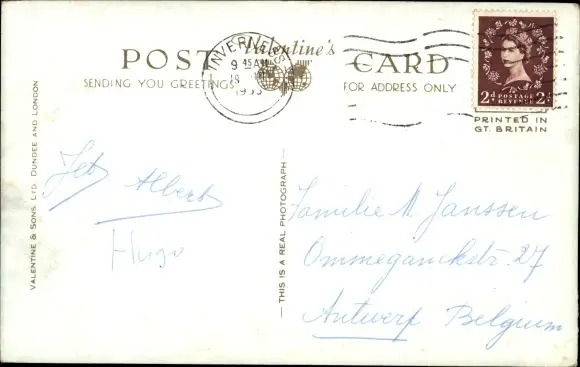 POST Valentine's CARD
SENDING YOU GREETINGS FOR ADDRESS ONLY
INVERNESS
9 45 AM
18
1953
2d POSTAGE REVENUE 2d
PRINTED IN
GT. BRITAIN
VALENTINE & SONS, LTD. DUNDEE AND LONDON
Jet Albert
Hugo
— THIS IS A REAL PHOTOGRAPH —
Familie M. Janssen
Ommeganckstr. 27
Antwerp Belgium